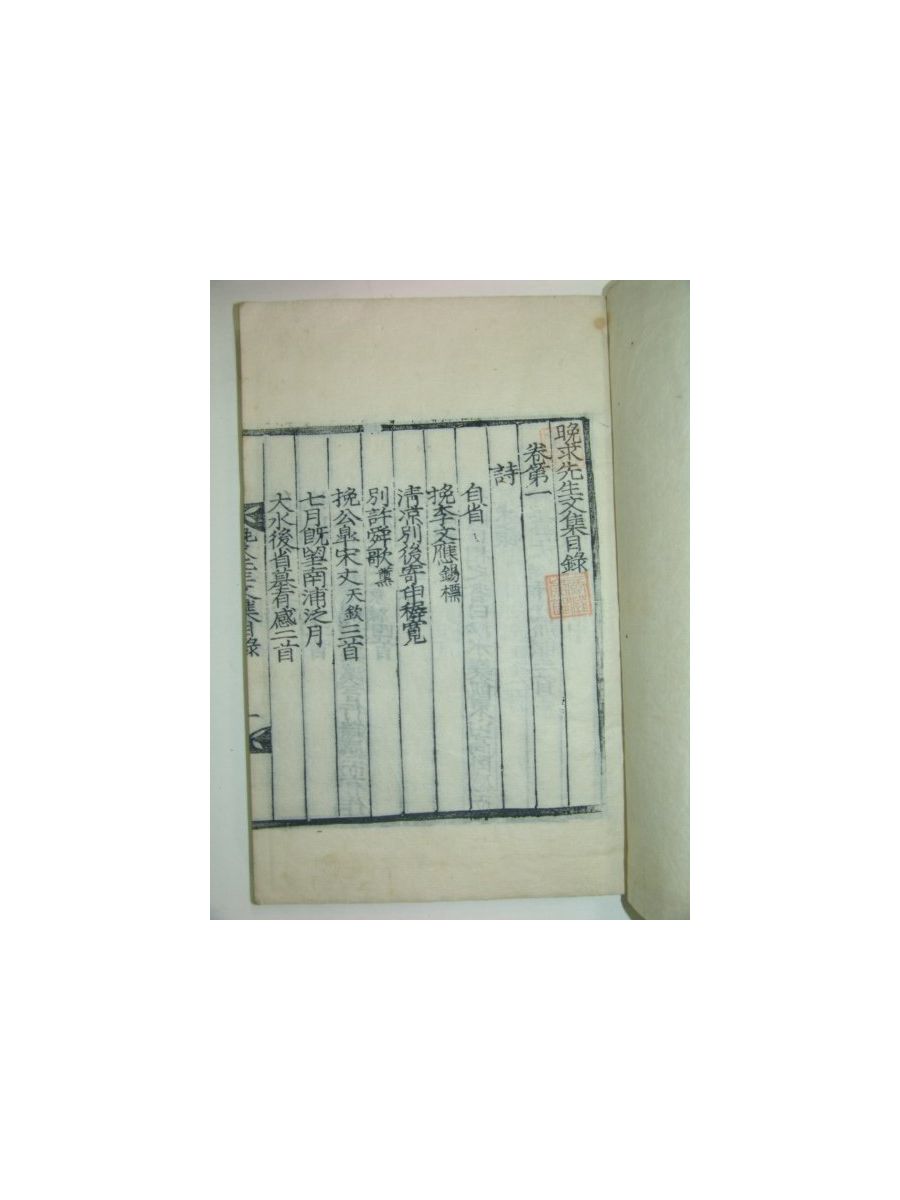 晚求先生文集目錄
卷第一
詩
自省
挽李文應錫標
淸凉別後寄申穉寬
別許舜歌薰
挽公臯宋丈天欽三首
七月旣望南浦泛月
大水後省墓有感二首
晚求先生文集目錄 一